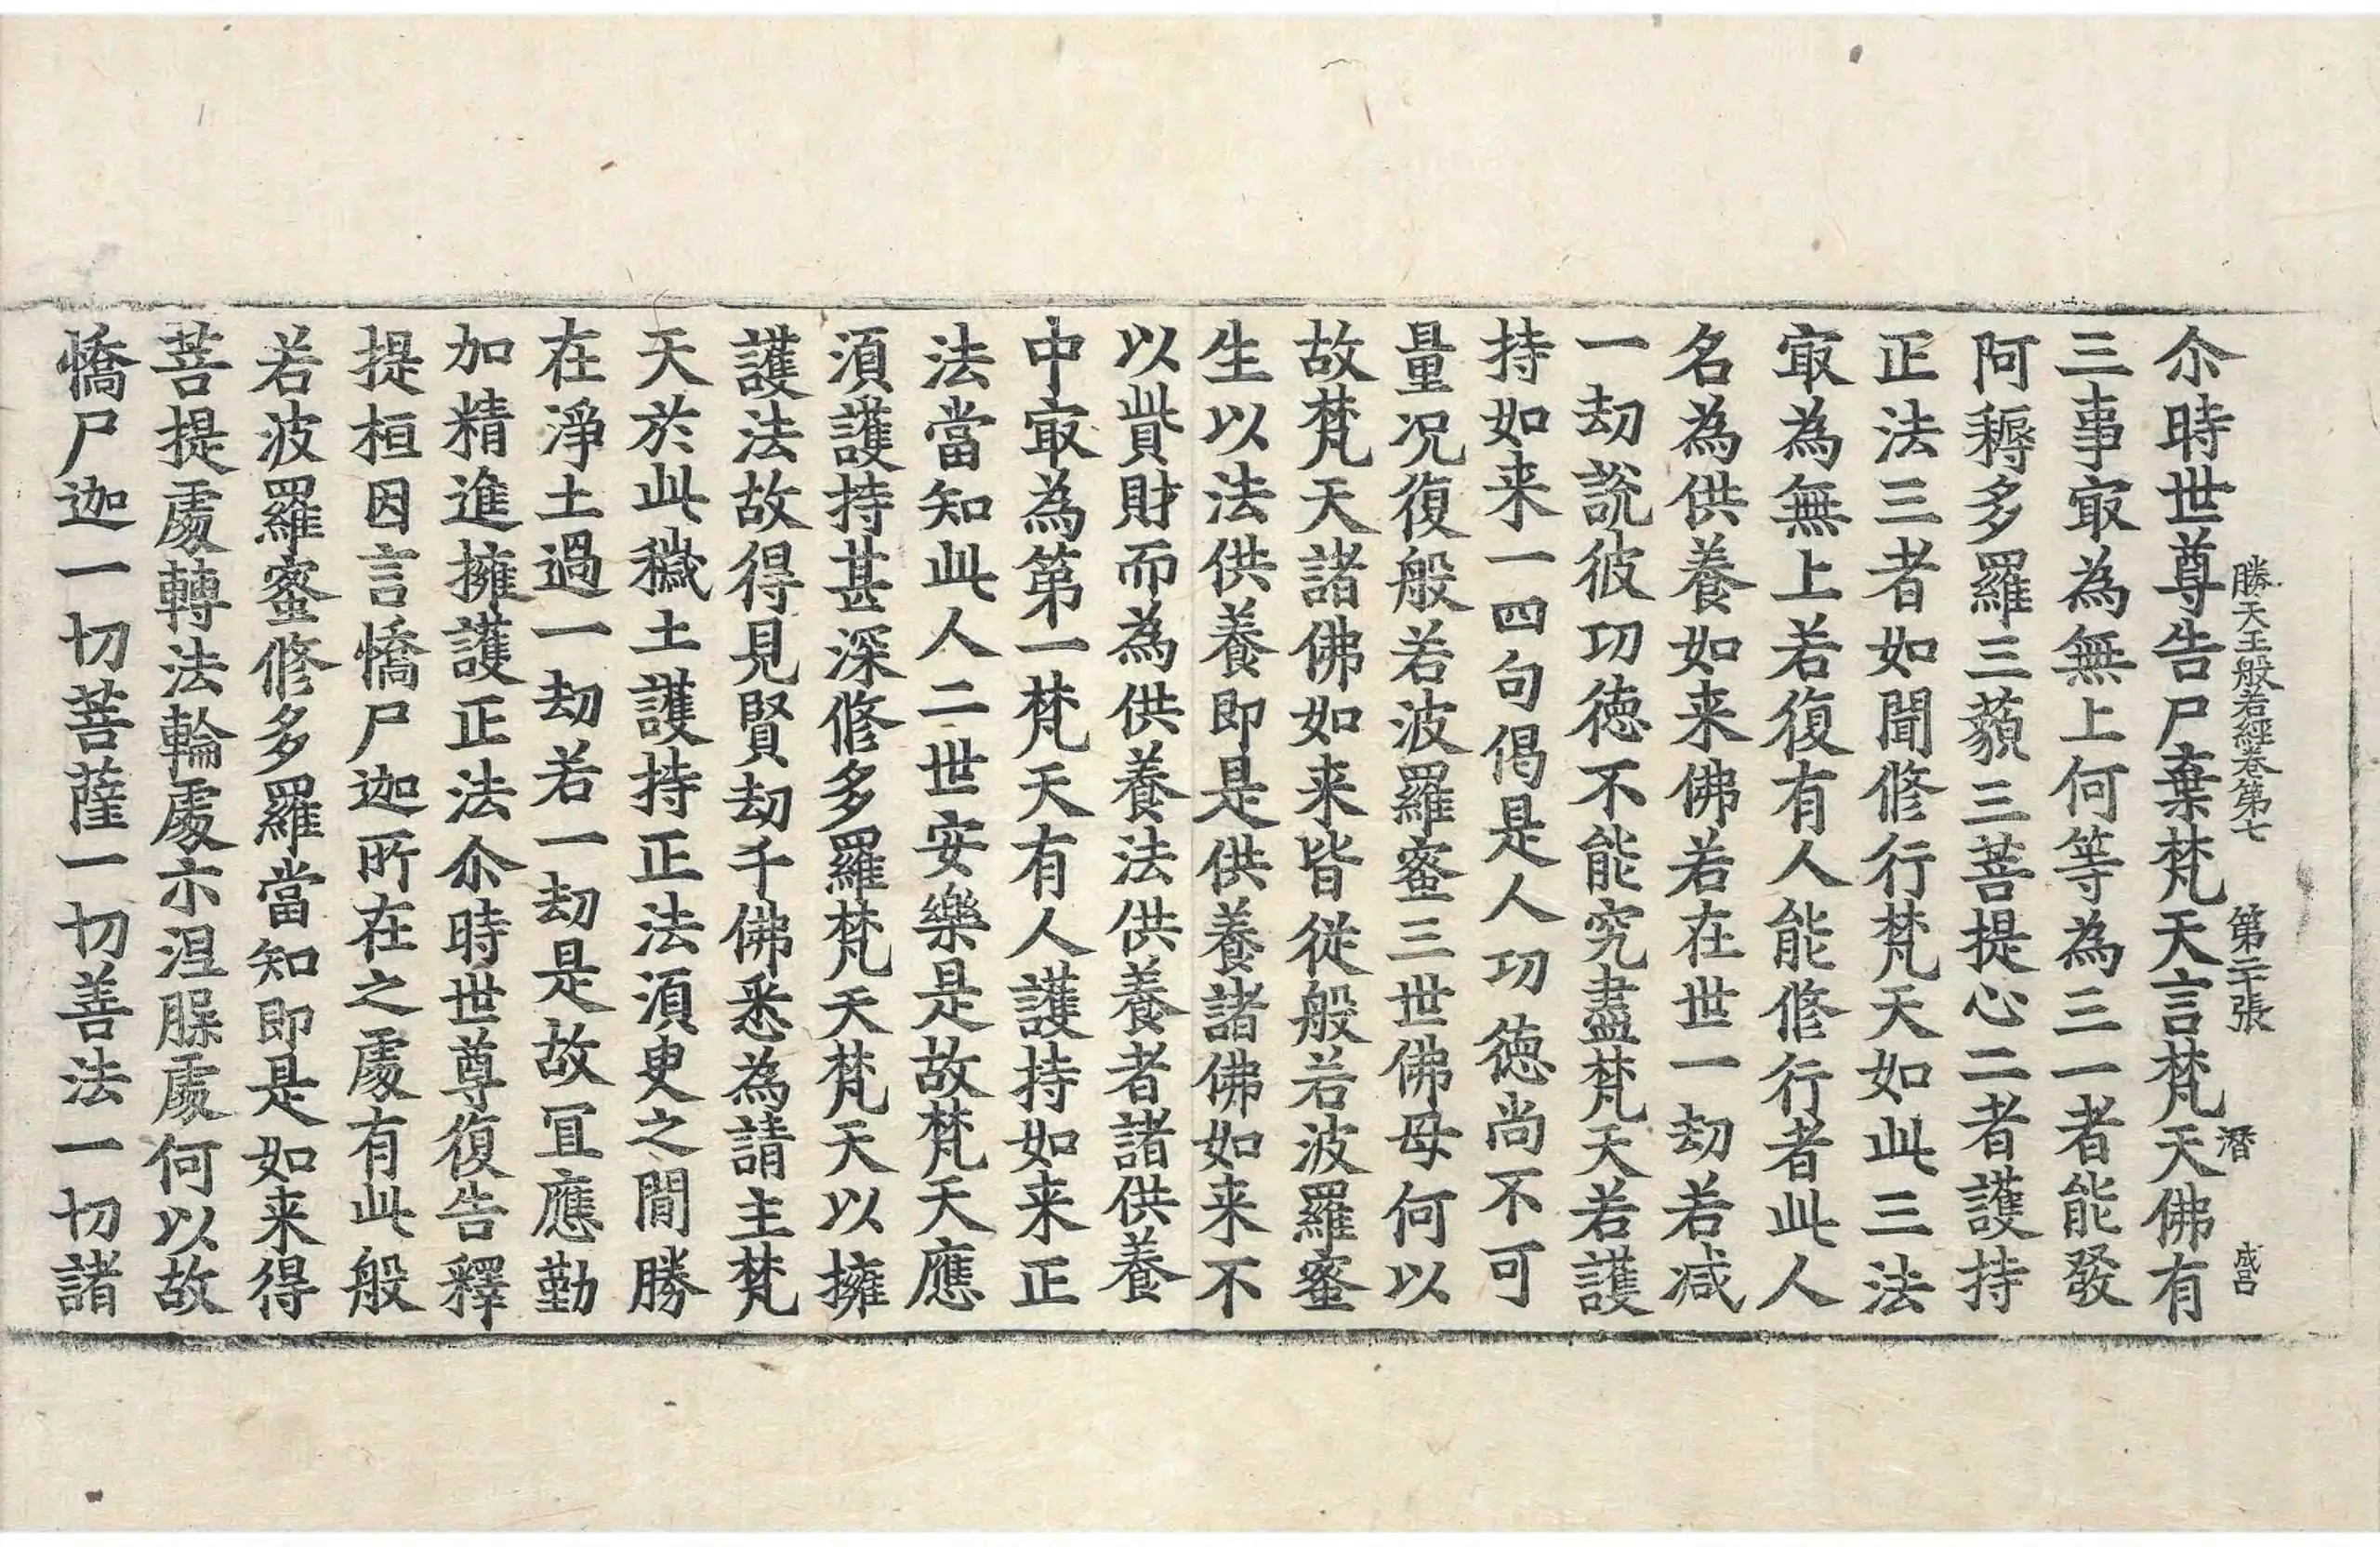 勝天王般若經卷第七 第二十張 潛 成呂
尒時世尊告尸棄梵天言梵天佛有
三事㝡為無上何等為三一者能發
阿耨多羅三藐三菩提心二者護持
正法三者如聞修行梵天如此三法
㝡為無上若復有人能修行者此人
名為供養如来佛若在世一劫若减
一劫說彼功徳不能究盡梵天若護
持如来一四句偈是人功徳尚不可
量况復般若波羅蜜三世佛母何以
故梵天諸佛如来皆從般若波羅蜜
生以法供養即是供養諸佛如来不
以貲財而為供養法供養者諸供養
中㝡為第一梵天有人護持如来正
法當知此人二世安樂是故梵天應
湏護持甚深修多羅梵天梵天以擁
護法故得見賢劫千佛悉為請主梵
天於此穢土護持正法湏臾之間勝
在淨土過一劫若一劫是故冝應勤
加精進擁護正法尒時世尊復告釋
提桓因言憍尸迦所在之處有此般
若波羅蜜修多羅當知即是如来得
菩提處轉法輪處示涅槃處何以故
憍尸迦一切菩薩一切善法一切諸